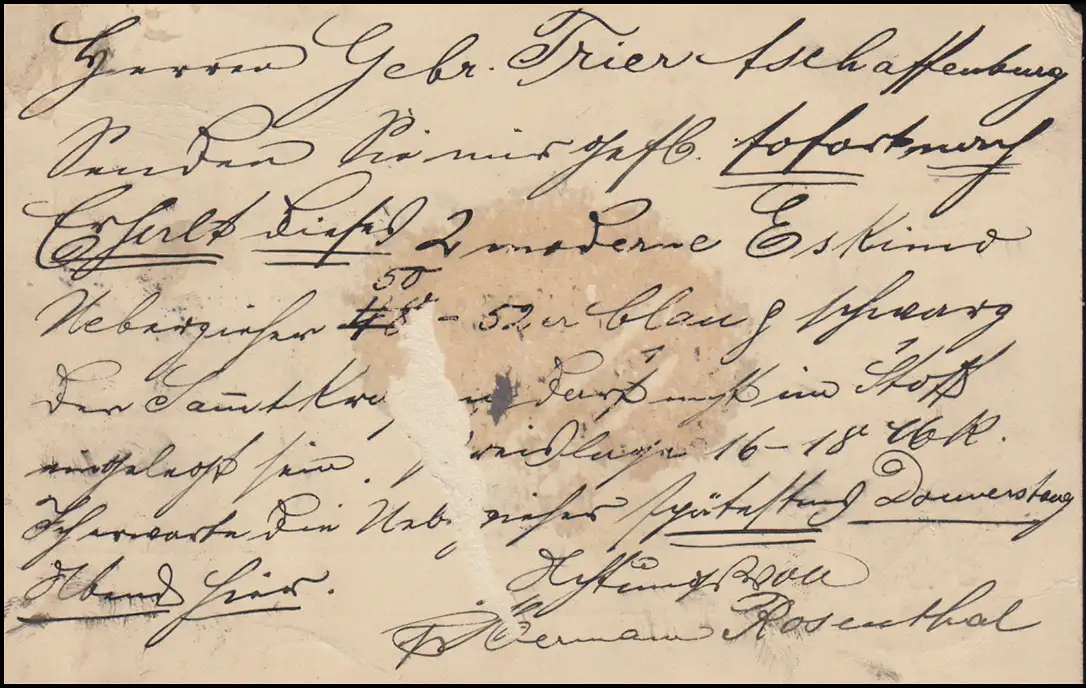 Herren Gebr. Trier Aschaffenburg
Senden Sie mir gefl. sofort nach
Erhalt dieses 2 moderne Eskimo
Ueberzieher 50er - 52er blau & schwarz
der Samtkragen darf nicht im Stoff
eingelegt sein. Preislage 16 - 18er Mk.
Ich erwarte die Ueberzieher spätestens Donnerstag
Abend hier.
Achtungsvoll
Hermann Rosenthal